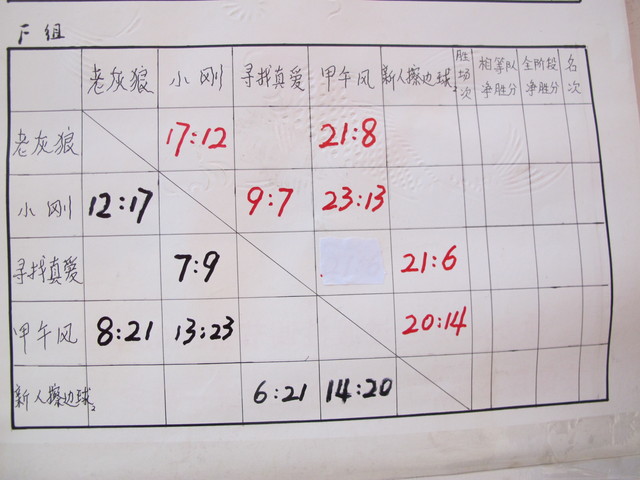 F组
老灰狼 小刚 寻找真爱 甲午风 新人擦边球2 胜场次 相等队净胜分 全阶段净胜分 名次
老灰狼 17:12 21:8
小刚 12:17 9:7 23:13
寻找真爱 7:9 21:6
甲午风 8:21 13:23 20:14
新人擦边球2 6:21 14:20